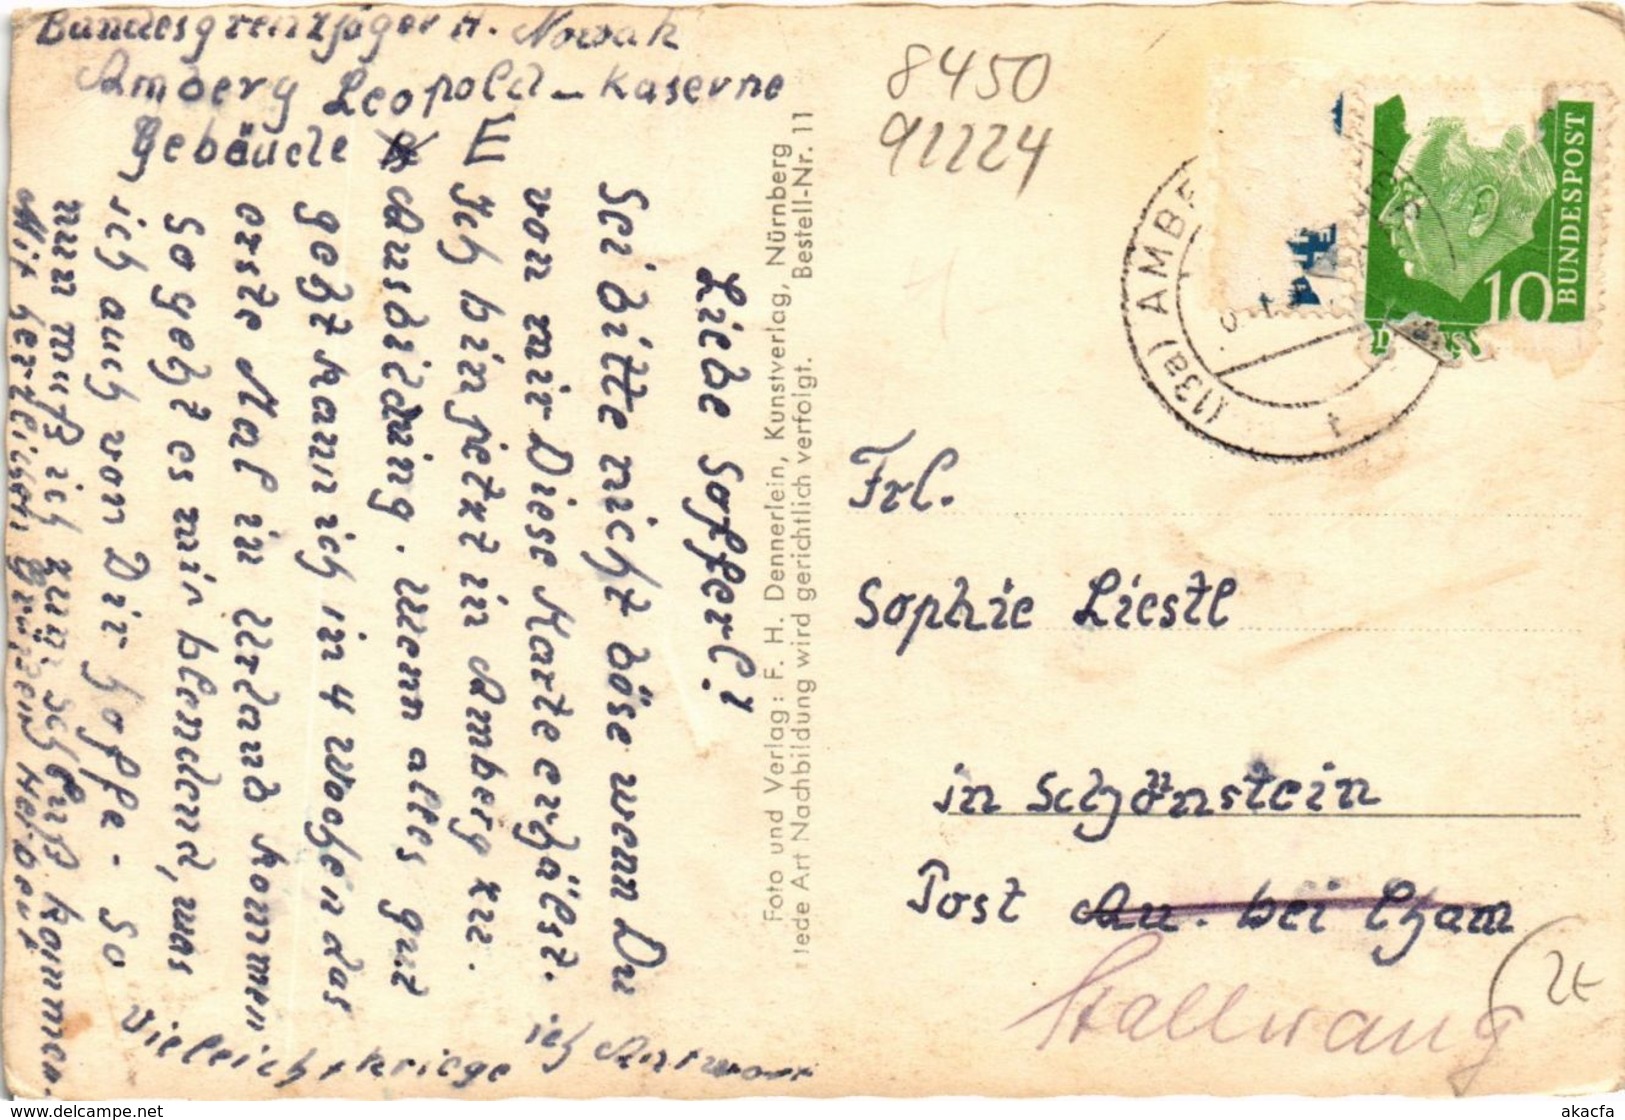 Bundesgrenzjäger H. Nowak
Amberg Leopold-Kaserne
Gebäude E
Liebe Sofferl!
Sei bitte nicht böse wenn Du
von mir Diese Karte erhälst.
Ich bin jetzt in Amberg zu.
Ausbildung. Wenn alles gut
geht kann ich in 4 Wochen das
erste Mal in Urlaub kommen
So geht es mir blendend, was
ich auch von Dir hoffe. So
nun muß ich zum schluß kommen.
Mit herzlichen Grüßen Herbert
Vieleicht kriege ich Antwort
Foto und Verlag: F. H. Dennerlein, Kunstverlag, Nürnberg
Jede Art Nachbildung wird gerichtlich verfolgt. Bestell-Nr. 11
8450
91224
(13a) AMBE
10
BUNDESPOST
Frl.
Sophie Liestl
in Schönstein
Post Au. bei Cham
Stallwang
2€
akacfa
www.delcampe.net